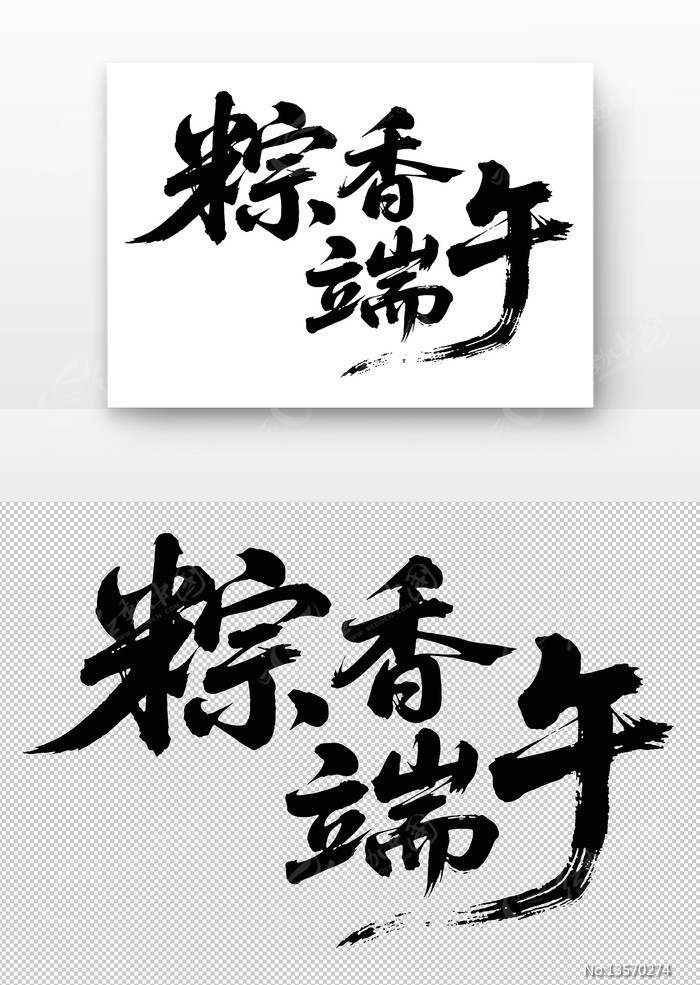 粽香
端午
粽香
端午
No:13570274